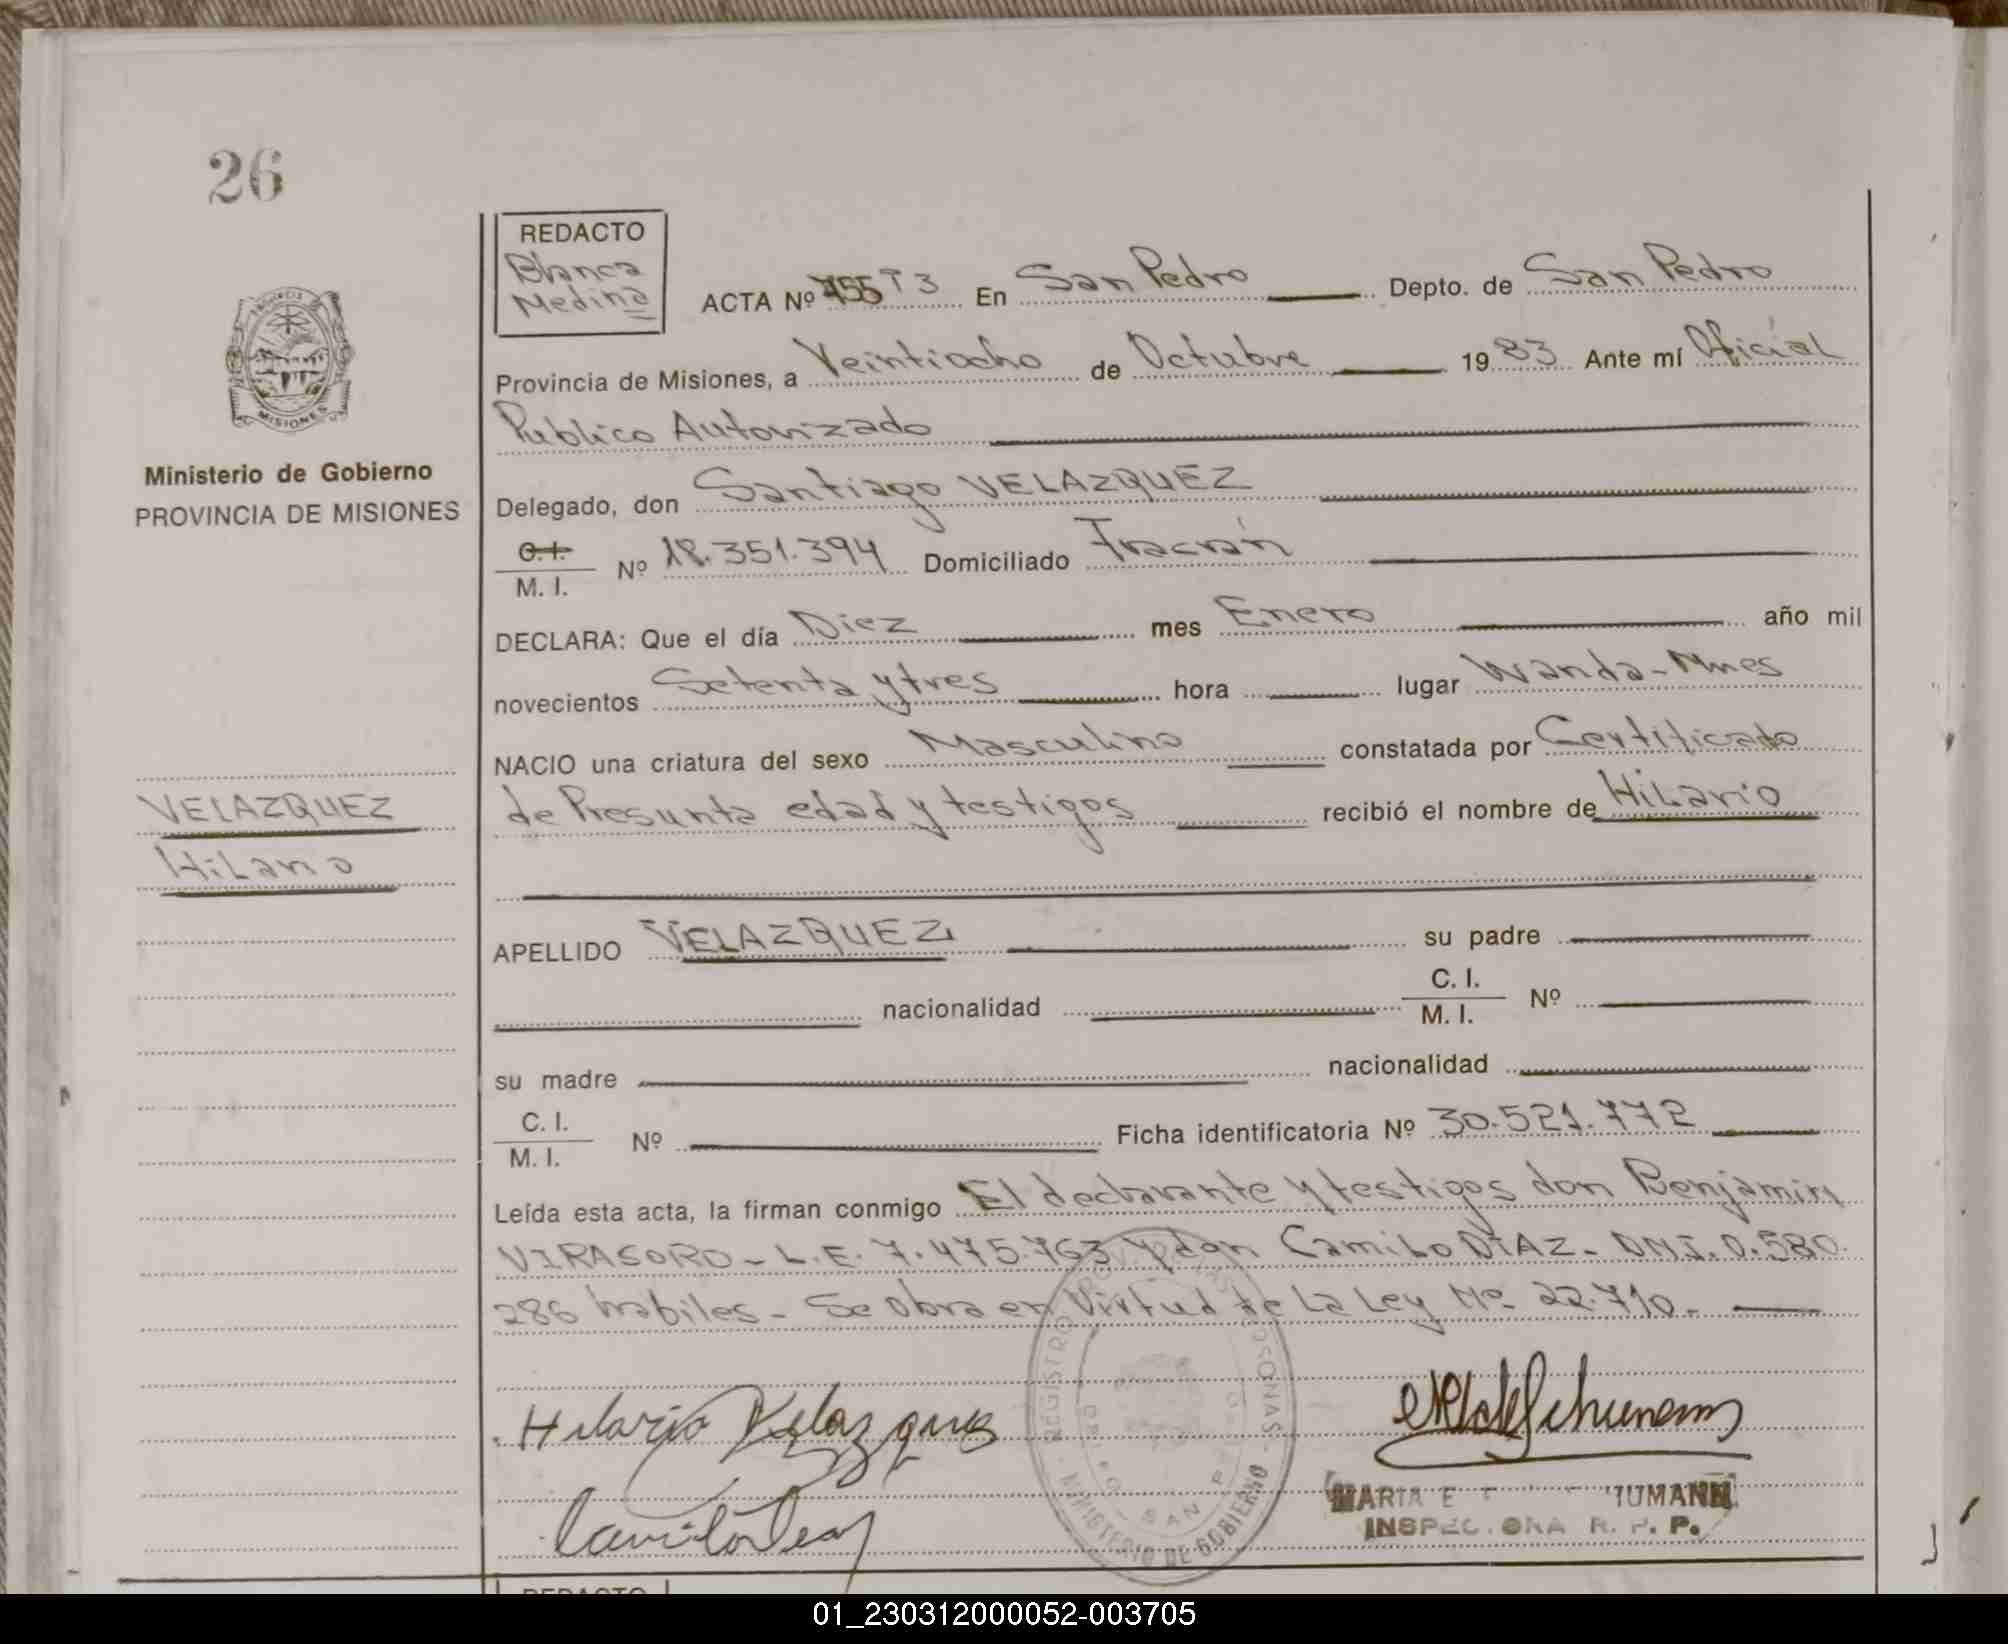 26
REDACTO
Blanca
Medina
ACTA Nº 755 T3 En San Pedro Depto. de San Pedro
Provincia de Misiones, a Veintiocho de Octubre 1983 Ante mí Oficial
Publico Autorizado
MISIONES
Ministerio de Gobierno
PROVINCIA DE MISIONES
Delegado, don Santiago VELAZQUEZ
C.I.
M. I. Nº 18.351.394 Domiciliado Fracrán
DECLARA: Que el día Diez mes Enero año mil
novecientos Setenta y tres hora lugar Wanda-Mnes
NACIO una criatura del sexo Masculino constatada por Certificado
de Presunta edad y testigos recibió el nombre de Hilario
VELAZQUEZ
Hilario
APELLIDO VELAZQUEZ su padre
nacionalidad C. I.
M. I. Nº
su madre nacionalidad
C. I.
M. I. Nº Ficha identificatoria Nº 30.521.772
Leída esta acta, la firman conmigo El declarante y testigos don Benjamin
VIRASORO - L.E. 7.475.763 y don Camilo DIAZ - DNI. 0.580.
286 habiles - Se obra en Virtud de La Ley Nº 22.710.-
Hilario Velazquez
MINISTERIO DE GOBIERNO
SAN PEDRO
MARIA E
INSPECTORA R. P. P.
REDACTO
01_230312000052-003705